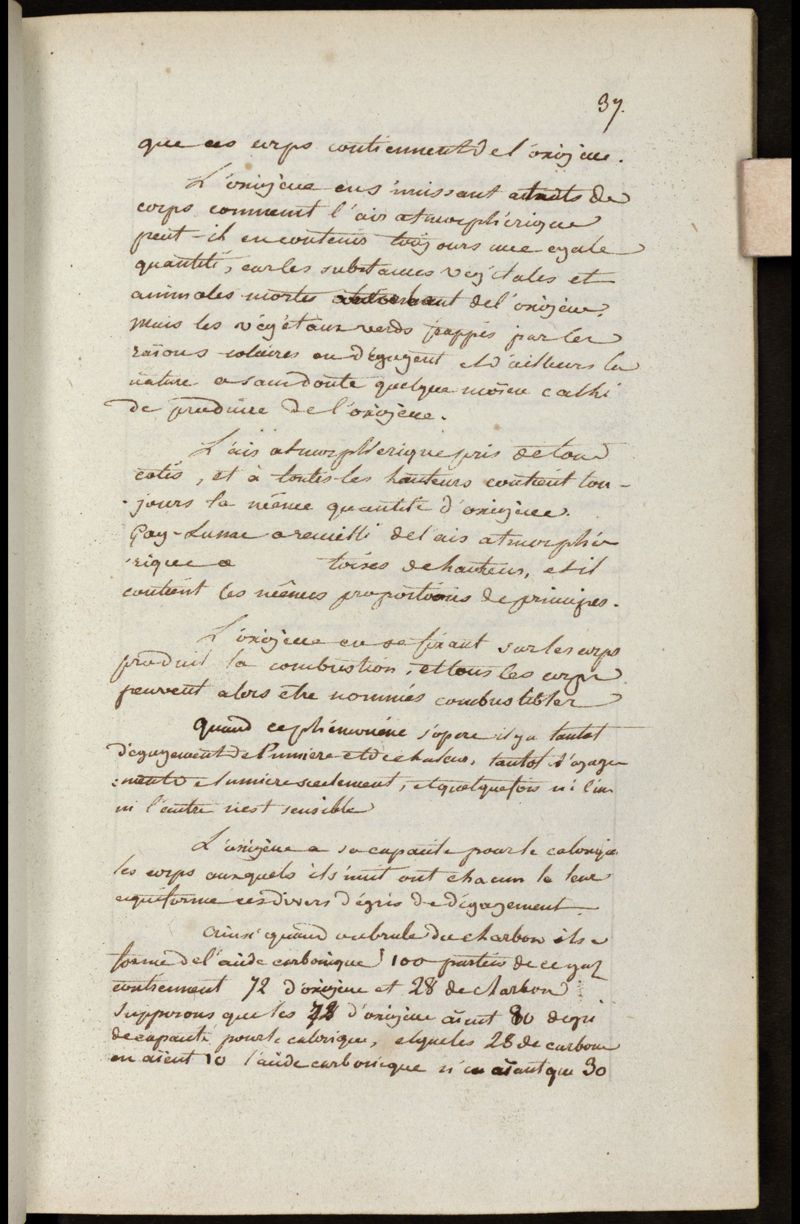 37.
que ces corps contiennent de l'oxigene.
L'oxigene en s'unissant à tants de
corps comment l'air atmosphérique
peut-il en contenir toujours une egale
quantité, car les substances végétales et
animales mortes absorbent de l'oxigene.
mais les végétaux verds frappés par les
raïons solaires en dégagent et d'ailleurs la
nature a sans doute quelque moïen caché
de produire de l'oxigene.
L'air atmospherique pris de tous
cotés, et à toutes les hauteurs contient tou-
-jours la même quantité d'oxigène.
Gay-Lussac a recueilli de l'air atmosphé
-rique a toises de hauteur, et il
contient les mêmes proportions de principes.
L'oxigene en se fixant sur les corps
produit la combustion, et tous les corps
peuvent alors etre nommés combustibles
Quand ce phénomène s'opere il y a tantot
dégagement de lumiere et de chaleur, tantot dégage-
-ment de lumiere seulement, et quelquefois ni l'un
ni l'autre n'est sensible
L'oxigène a sa capacité pour le calorique
les corps auxquels il s'unit ont chacun la leur
ce qui forme ces divers dégrés de dégagement.
Ainsi quand on brule du charbon il se
forme de l'acide carbonique 100 parties de ce gaz
contiennent 72 d'oxigene et 28 de charbon
Supposons que les 72 d'oxigene aïent 80 degré
de capacité pour le calorique, et que les 28 de carbone
en aïent 10 l'acide carbonique n'en aïant que 30